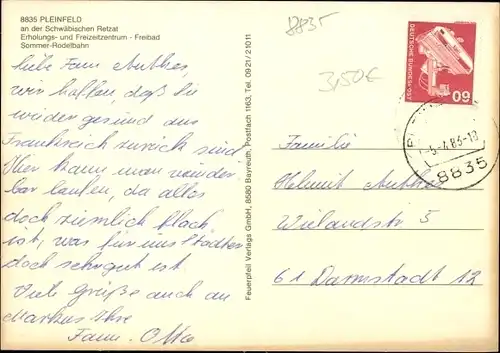 8835 PLEINFELD
an der Schwäbischen Retzat
Erholungs- und Freizeitzentrum - Freibad
Sommer-Rodelbahn
Liebe Fam. Anthes,
wir hoffen, daß Sie
wieder gesund aus
Frankreich zurück sind
Hier kann man wunder
bar laufen, da alles
doch ziemlich flach
ist, was für uns Städter
doch sehr gut ist.
Viele Grüße auch an
Markus Ihre
Fam. Otto
Feuerpfeil Verlags GmbH, 8580 Bayreuth, Postfach 1163, Tel. 09 21 / 2 10 11
8835
3,50€
DEUTSCHE BUNDESPOST
60
-5.-4.83-18
8835
Familie
Helmut Anthes
Wielandstr. 5
61 Darmstadt 12